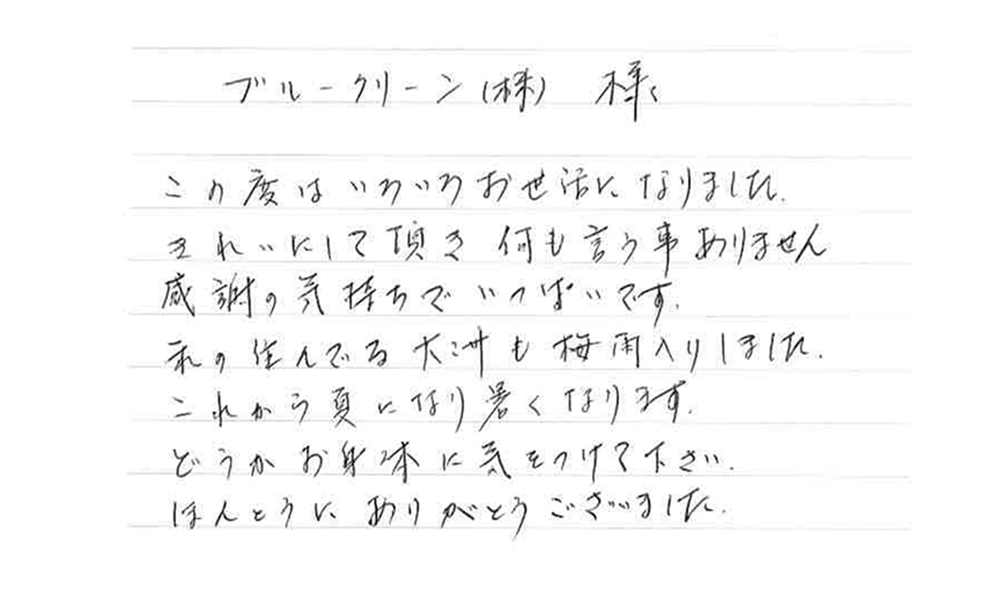 ブルークリーン(株) 様
この度はいろいろお世話になりました.
きれいにして頂き 何も言う事ありません
感謝の気持ちでいっぱいです.
私の住んでる大洲も梅雨入りしました.
これから夏になり暑くなります.
どうかお身体に気をつけて下さい.
ほんとうに ありがとうございました.